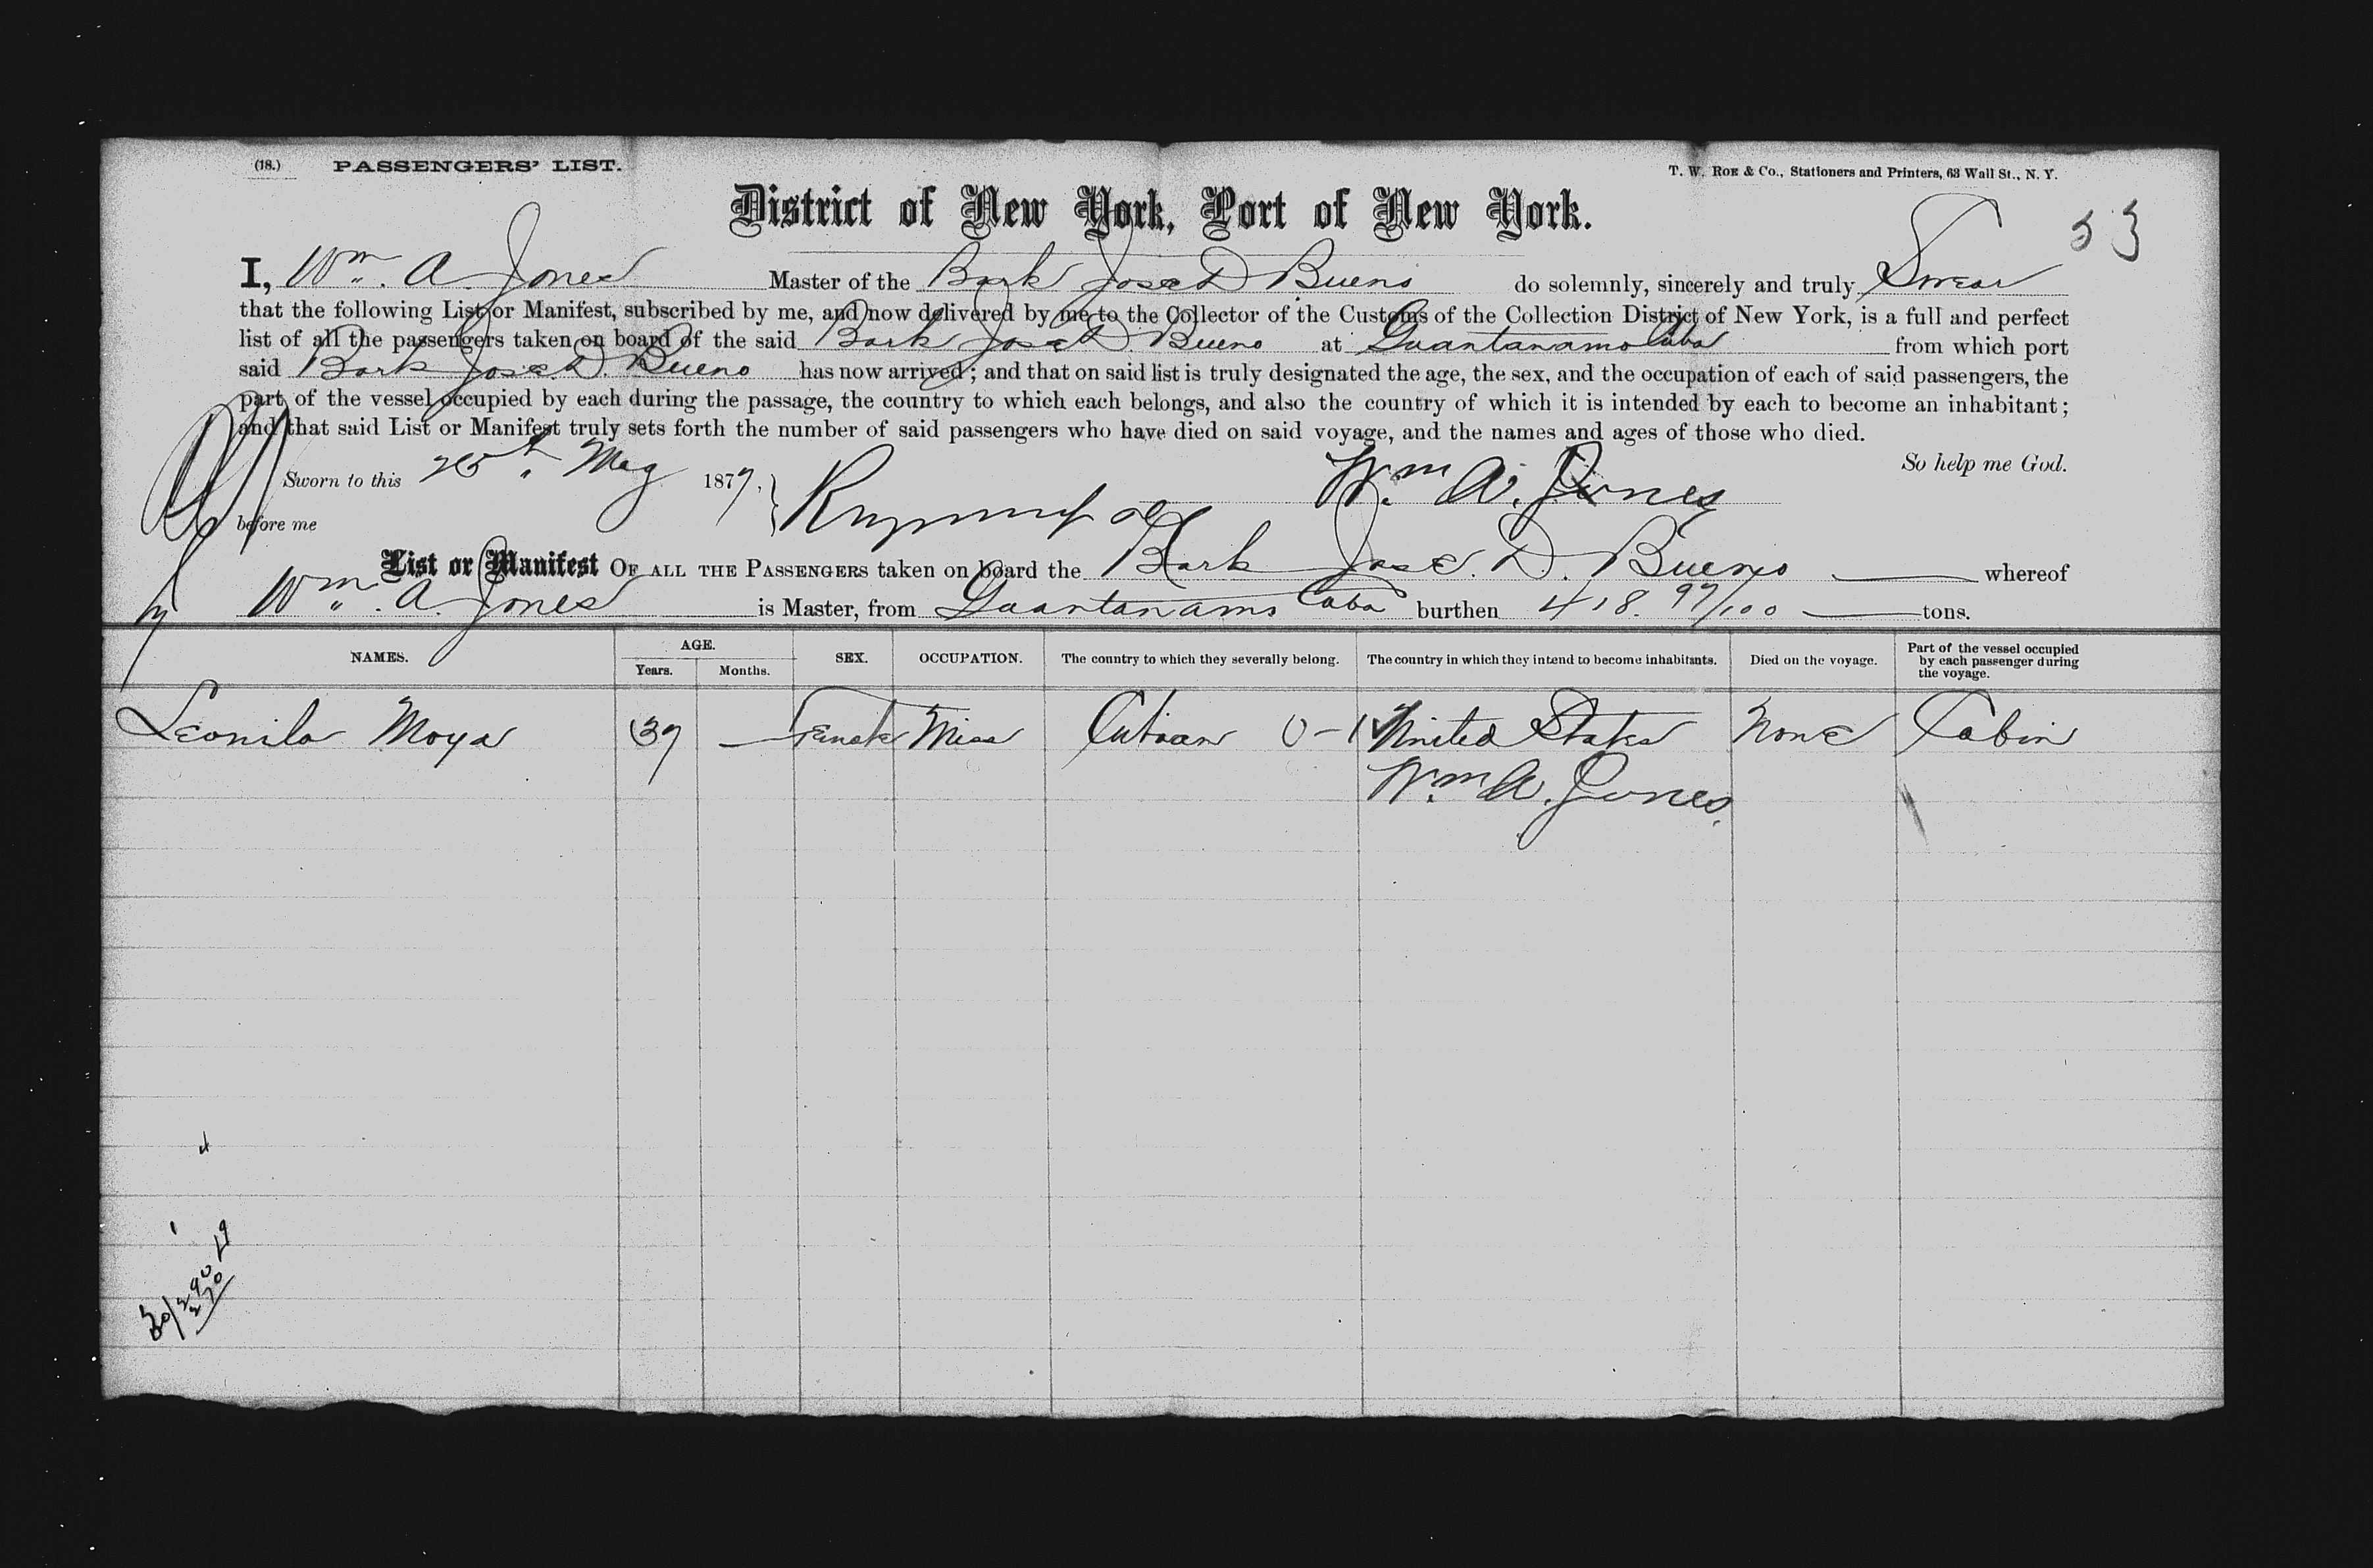 (18.) PASSENGERS' LIST. T. W. ROE & Co., Stationers and Printers, 63 Wall St., N. Y.
District of New York, Port of New York. 53
I, Wm. A. Jones Master of the Bark Jose D Bueno do solemnly, sincerely and truly Swear
that the following List or Manifest, subscribed by me, and now delivered by me to the Collector of the Customs of the Collection District of New York, is a full and perfect
list of all the passengers taken on board of the said Bark Jose D. Bueno at Guantanamo Cuba from which port
said Bark Jose D. Bueno has now arrived; and that on said list is truly designated the age, the sex, and the occupation of each of said passengers, the
part of the vessel occupied by each during the passage, the country to which each belongs, and also the country of which it is intended by each to become an inhabitant;
and that said List or Manifest truly sets forth the number of said passengers who have died on said voyage, and the names and ages of those who died.
So help me God.
Sworn to this May 1877, Wm A. Jones
before me
List or Manifest OF ALL THE PASSENGERS taken on board the Bark Jose. D. Bueno whereof
Wm. A. Jones is Master, from Guantanamo Cuba burthen 418. 97/100 tons.
NAMES. AGE. Years. Months. SEX. OCCUPATION. The country to which they severally belong. The country in which they intend to become inhabitants. Died on the voyage. Part of the vessel occupied by each passenger during the voyage.
Leonila Moya 39 — Female Miss Cuban 0-1 United States None Cabin
Wm A. Jones.